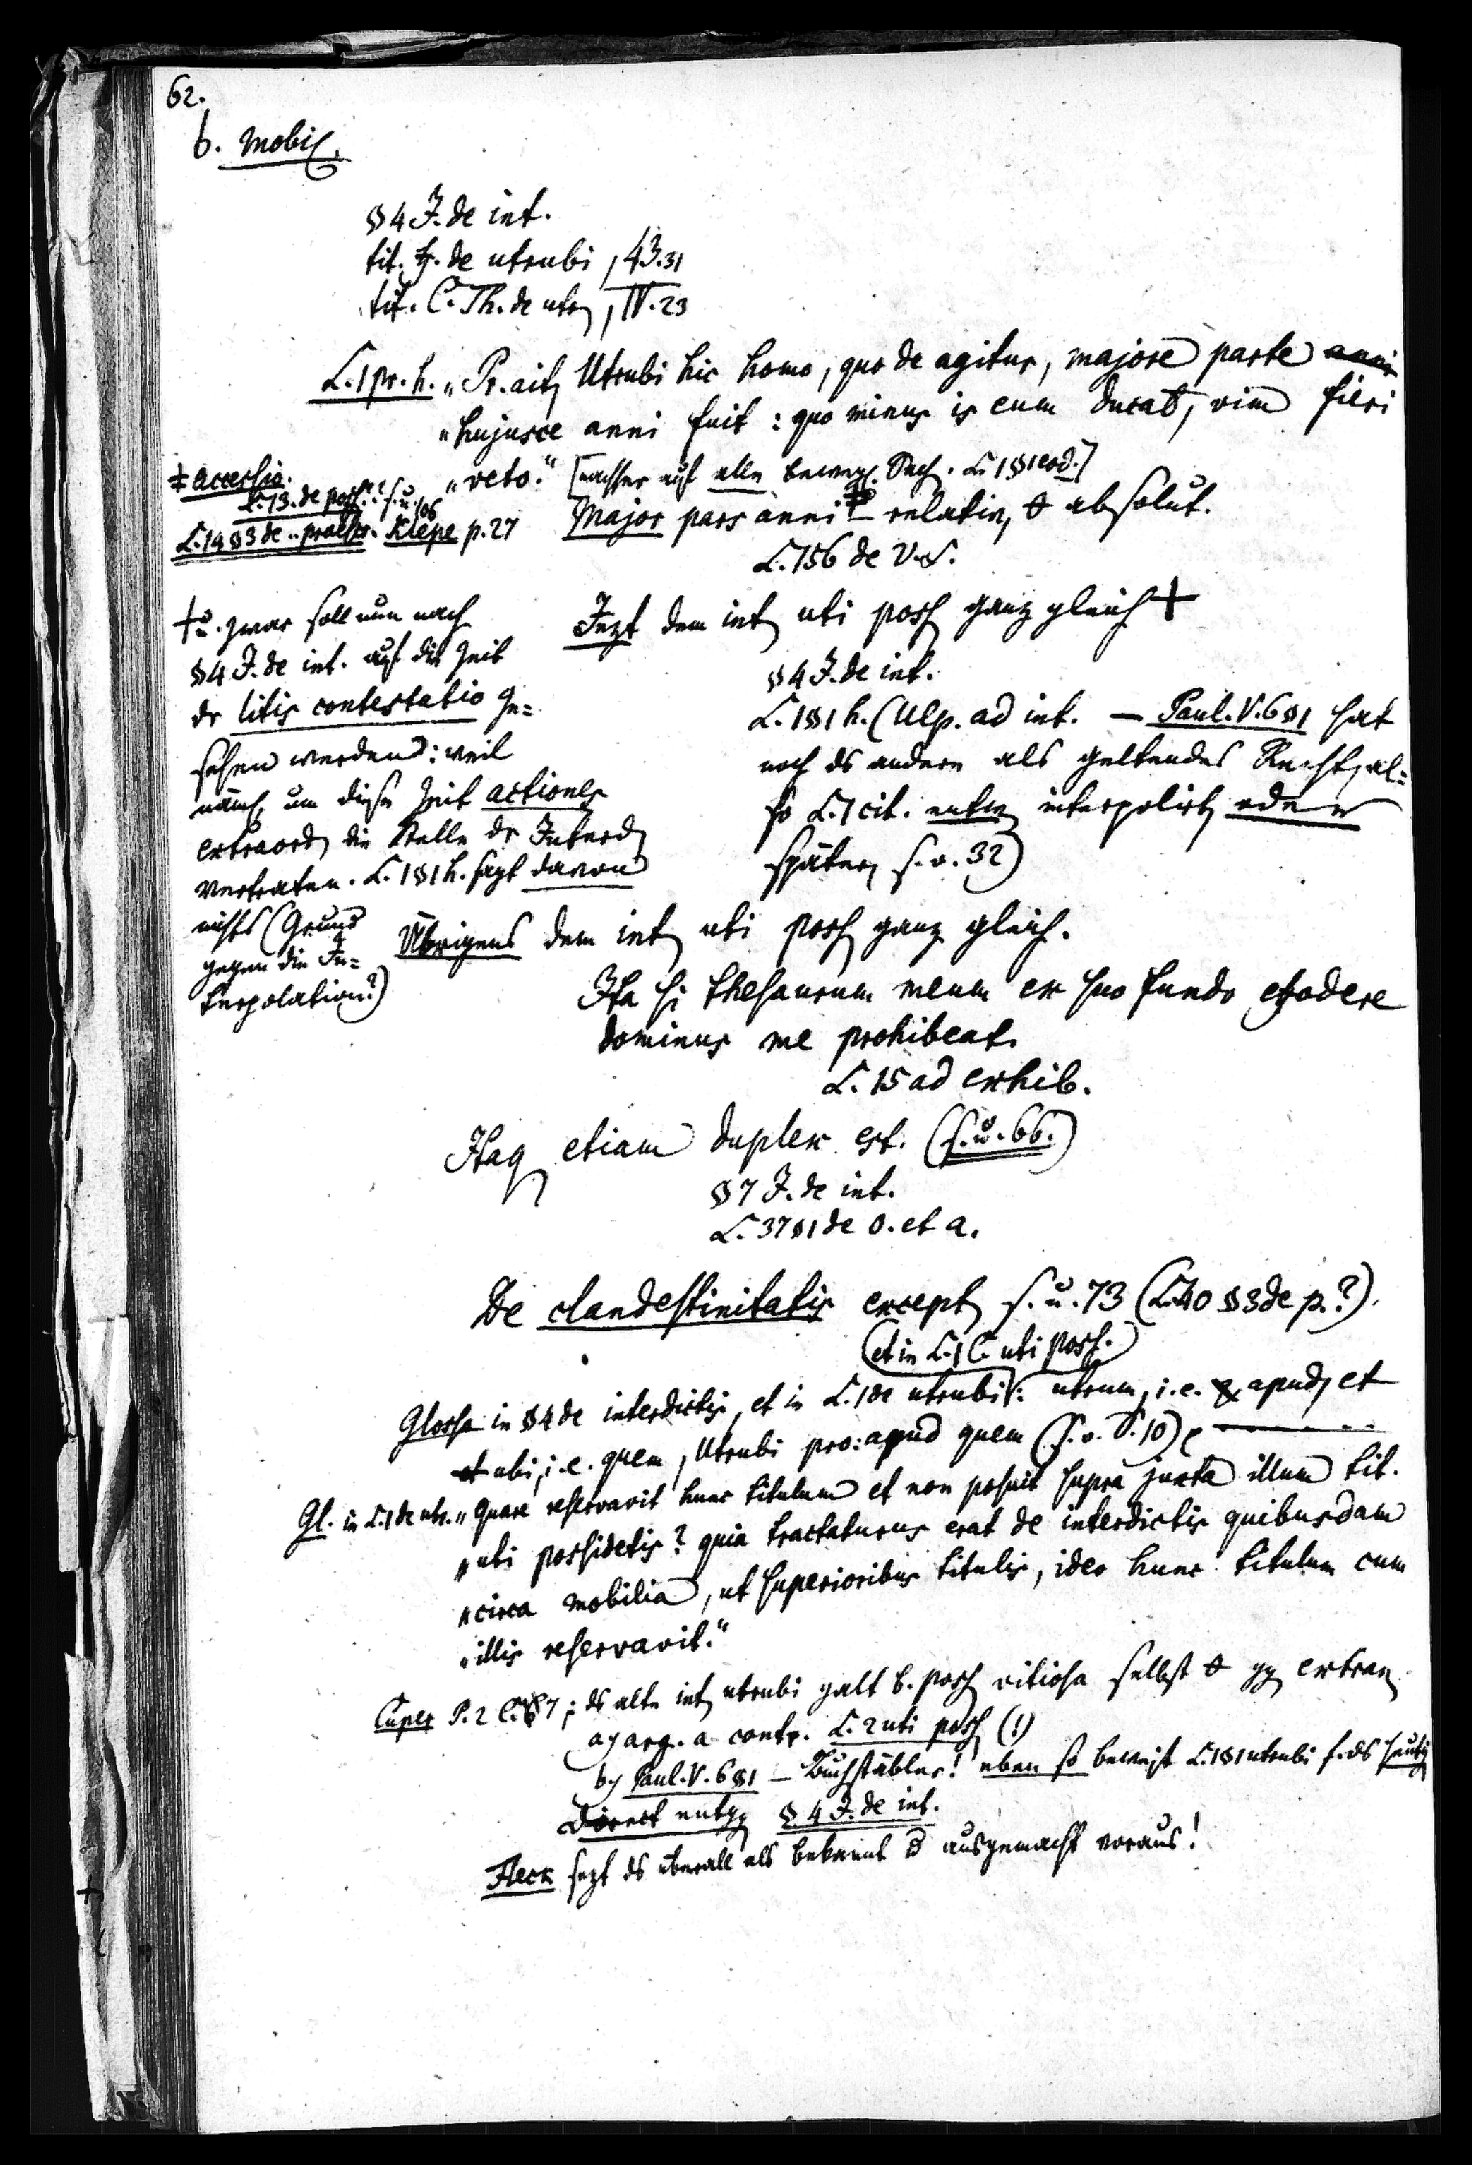 62.
b. Mobil.
§ 4 J. de int.
tit. ff. de utrubi, 43.31
tit. C. Th. de utr, IV. 23
L. 1 pr. h. „Pr. ait, Utrubi hic homo, quo de agitur, majore parte anni
„hujusce anni fuit: quo minus is eum ducat, vim fieri
„veto.“ [nachher auf alle bewegl. Sach. L 1 § 1 eod.]
Major pars anni ‡ relativ, absolut.
L. 156 de V. S.
‡ accessio.
L. 13. de poss.? s. u. 106
L. 14 § 3 de .. praescr. Klepe p. 27
Jezt dem int uti poss ganz gleich +
§ 4 J. de int.
L. 1 § 1 h. (Ulp. ad int. — Paul. V. 6 § 1 hat
noch ds andere als geltendes Recht, al=
so L. 1 cit. entw interpolirt, oder
später, s. o. 32)
+ u. zwar soll nun nach
§ 4 J. de int. auf die Zeit
dr litis contestatio ge=
sehen werden: weil
näml. um diese Zeit actiones
extraord die Stelle dr Interd
vertraten. L. 1 § 1 h. sagt davon
nichts (Grund
gegen die In=
terpolation?)
Übrigens dem int uti poss ganz gleich.
Ita si thesaurum meum ex suo fundo effodere
dominus me prohibeat.
L. 15 ad exhib.
Itaq etiam duplex est. (s. u. 66.)
§ 7 J. de int.
L. 37 § 1 de O. et A.
De clandestinitatis except s. u. 73 (L. 40 § 3 de p.?).
(et in L. 1 C. uti poss.)
Glossa in § 4 de interdictis, et in L. 1 de utrubi: utrum, i. e. apud, et
et ubi, i. e. quem, Utrubi pro: apud quem (s. o. S. 10)
Gl. in L. 1 de utr. „Quare reservavit hunc titulum et non posuit supra juxta illum tit.
„uti possidetis? quia tractaturus erat de interdictis quibusdam
„circa mobilia, ut superioribus titulis, ideo hunc titulum cum
„illis reservavit.“
Cuper P. 2 C. 7; ds alte int utrubi galt b. poss vitiosa selbst gg extran
a) arg. a contr. L. 2 uti poss (!)
b) Paul. V. 6 § 1 — Buchstäbler! eben so beweist L. 1 § 1 utrubi f. ds heutig
Direct entgg § 4 J. de int.
Fleck sezt ds überall als bekannt u ausgemacht voraus!